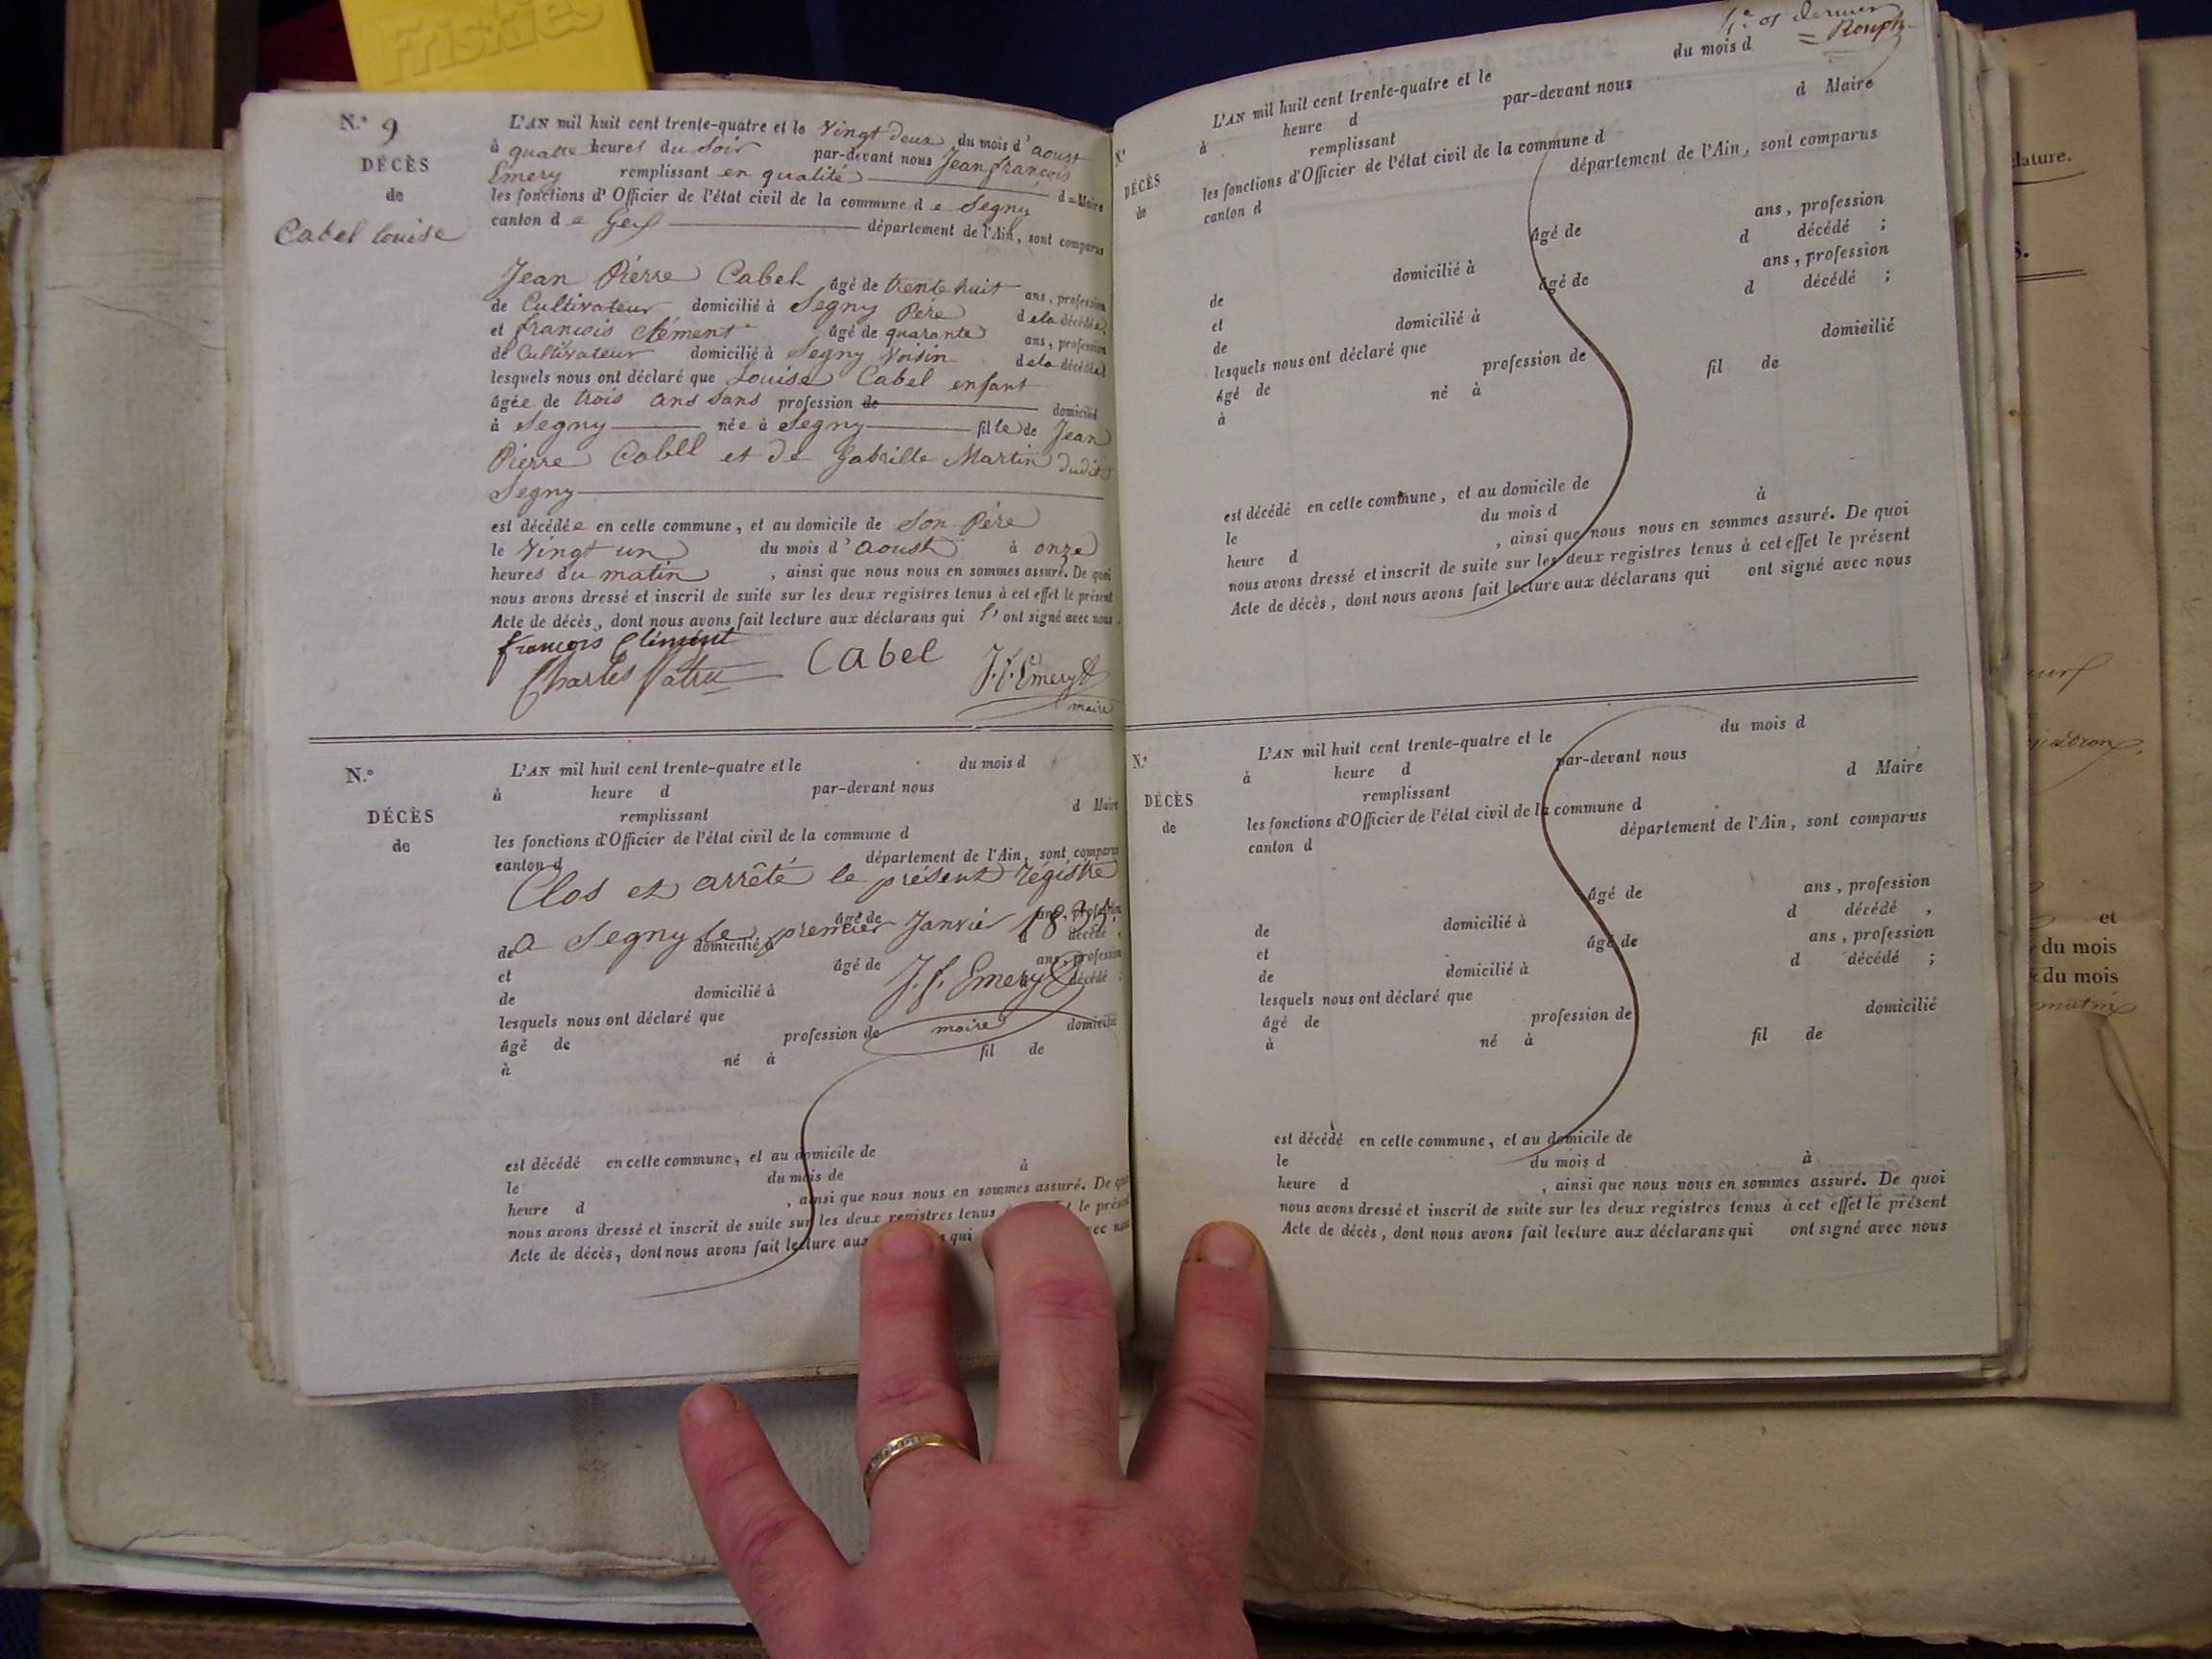 Friskies
N.o 9
DÉCÈS
de
Cabel Louise
L'AN mil huit cent trente-quatre et le Vingt deux du mois d'aoust
à quatre heures du Soir par-devant nous Jean françois
Emery remplissant en qualité d e Maire
les fonctions d'Officier de l'état civil de la commune d e Segny
canton d e Gex département de l'Ain, sont comparus
Jean Pierre Cabel âgé de trente huit ans, profession
de Cultivateur domicilié à Segny Père de la décédée;
et françois Clément âgé de quarante ans, profession
de Cultivateur domicilié à Segny Voisin de la décédée
lesquels nous ont déclaré que Louise Cabel enfant
âgée de trois ans Sans profession de domicilié
à Segny née à Segny fille de Jean
Pierre Cabel et de Gabrille Martin dudit
Segny
est décédée en cette commune, et au domicile de Son Père
le Vingt un du mois d'aoust à onze
heures du matin , ainsi que nous nous en sommes assuré. De quoi
nous avons dressé et inscrit de suite sur les deux registres tenus à cet effet le présent
Acte de décès, dont nous avons fait lecture aux déclarans qui l' ont signé avec nous.
françois Clément
Charles Cabel J. f. Emery
maire
N.o
DÉCÈS
de
L'AN mil huit cent trente-quatre et le du mois d
à heure d par-devant nous
remplissant d Maire
les fonctions d'Officier de l'état civil de la commune d
canton d département de l'Ain, sont comparus
Clos et arrêté le présent régistre
âgé de ans, profession
a Segny le premier Janvier 1835.
de domicilié à d décédé ;
et âgé de ans, profession
J. f. Emery
de domicilié à décédé ;
lesquels nous ont déclaré que
âgé de profession de maire domicilié
à né à fil de
est décédé en cette commune, et au domicile de
le du mois de à
heure d , ainsi que nous nous en sommes assuré. De quoi
nous avons dressé et inscrit de suite sur les deux registres tenus le présent
Acte de décès, dont nous avons fait lecture aux qui avec nous
dernier
N.o
DÉCÈS
de
L'AN mil huit cent trente-quatre et le du mois d
à heure d par-devant nous
remplissant d Maire
les fonctions d'Officier de l'état civil de la commune d
canton d département de l'Ain, sont comparus
âgé de ans, profession
de domicilié à d décédé ;
et âgé de ans, profession
de domicilié à d décédé ;
lesquels nous ont déclaré que
âgé de profession de domicilié
à né à fil de
est décédé en cette commune, et au domicile de
le du mois d à
heure d , ainsi que nous nous en sommes assuré. De quoi
nous avons dressé et inscrit de suite sur les deux registres tenus à cet effet le présent
Acte de décès, dont nous avons fait lecture aux déclarans qui ont signé avec nous
N.o
DÉCÈS
de
L'AN mil huit cent trente-quatre et le du mois d
à heure d par-devant nous
remplissant d Maire
les fonctions d'Officier de l'état civil de la commune d
canton d département de l'Ain, sont comparus
âgé de ans, profession
de domicilié à d décédé ,
et âgé de ans, profession
de domicilié à d décédé ;
lesquels nous ont déclaré que
âgé de profession de domicilié
à né à fil de
est décédé en cette commune, et au domicile de
le du mois d à
heure d , ainsi que nous nous en sommes assuré. De quoi
nous avons dressé et inscrit de suite sur les deux registres tenus à cet effet le présent
Acte de décès, dont nous avons fait lecture aux déclarans qui ont signé avec nous
lature.
s.
et
du mois
du mois